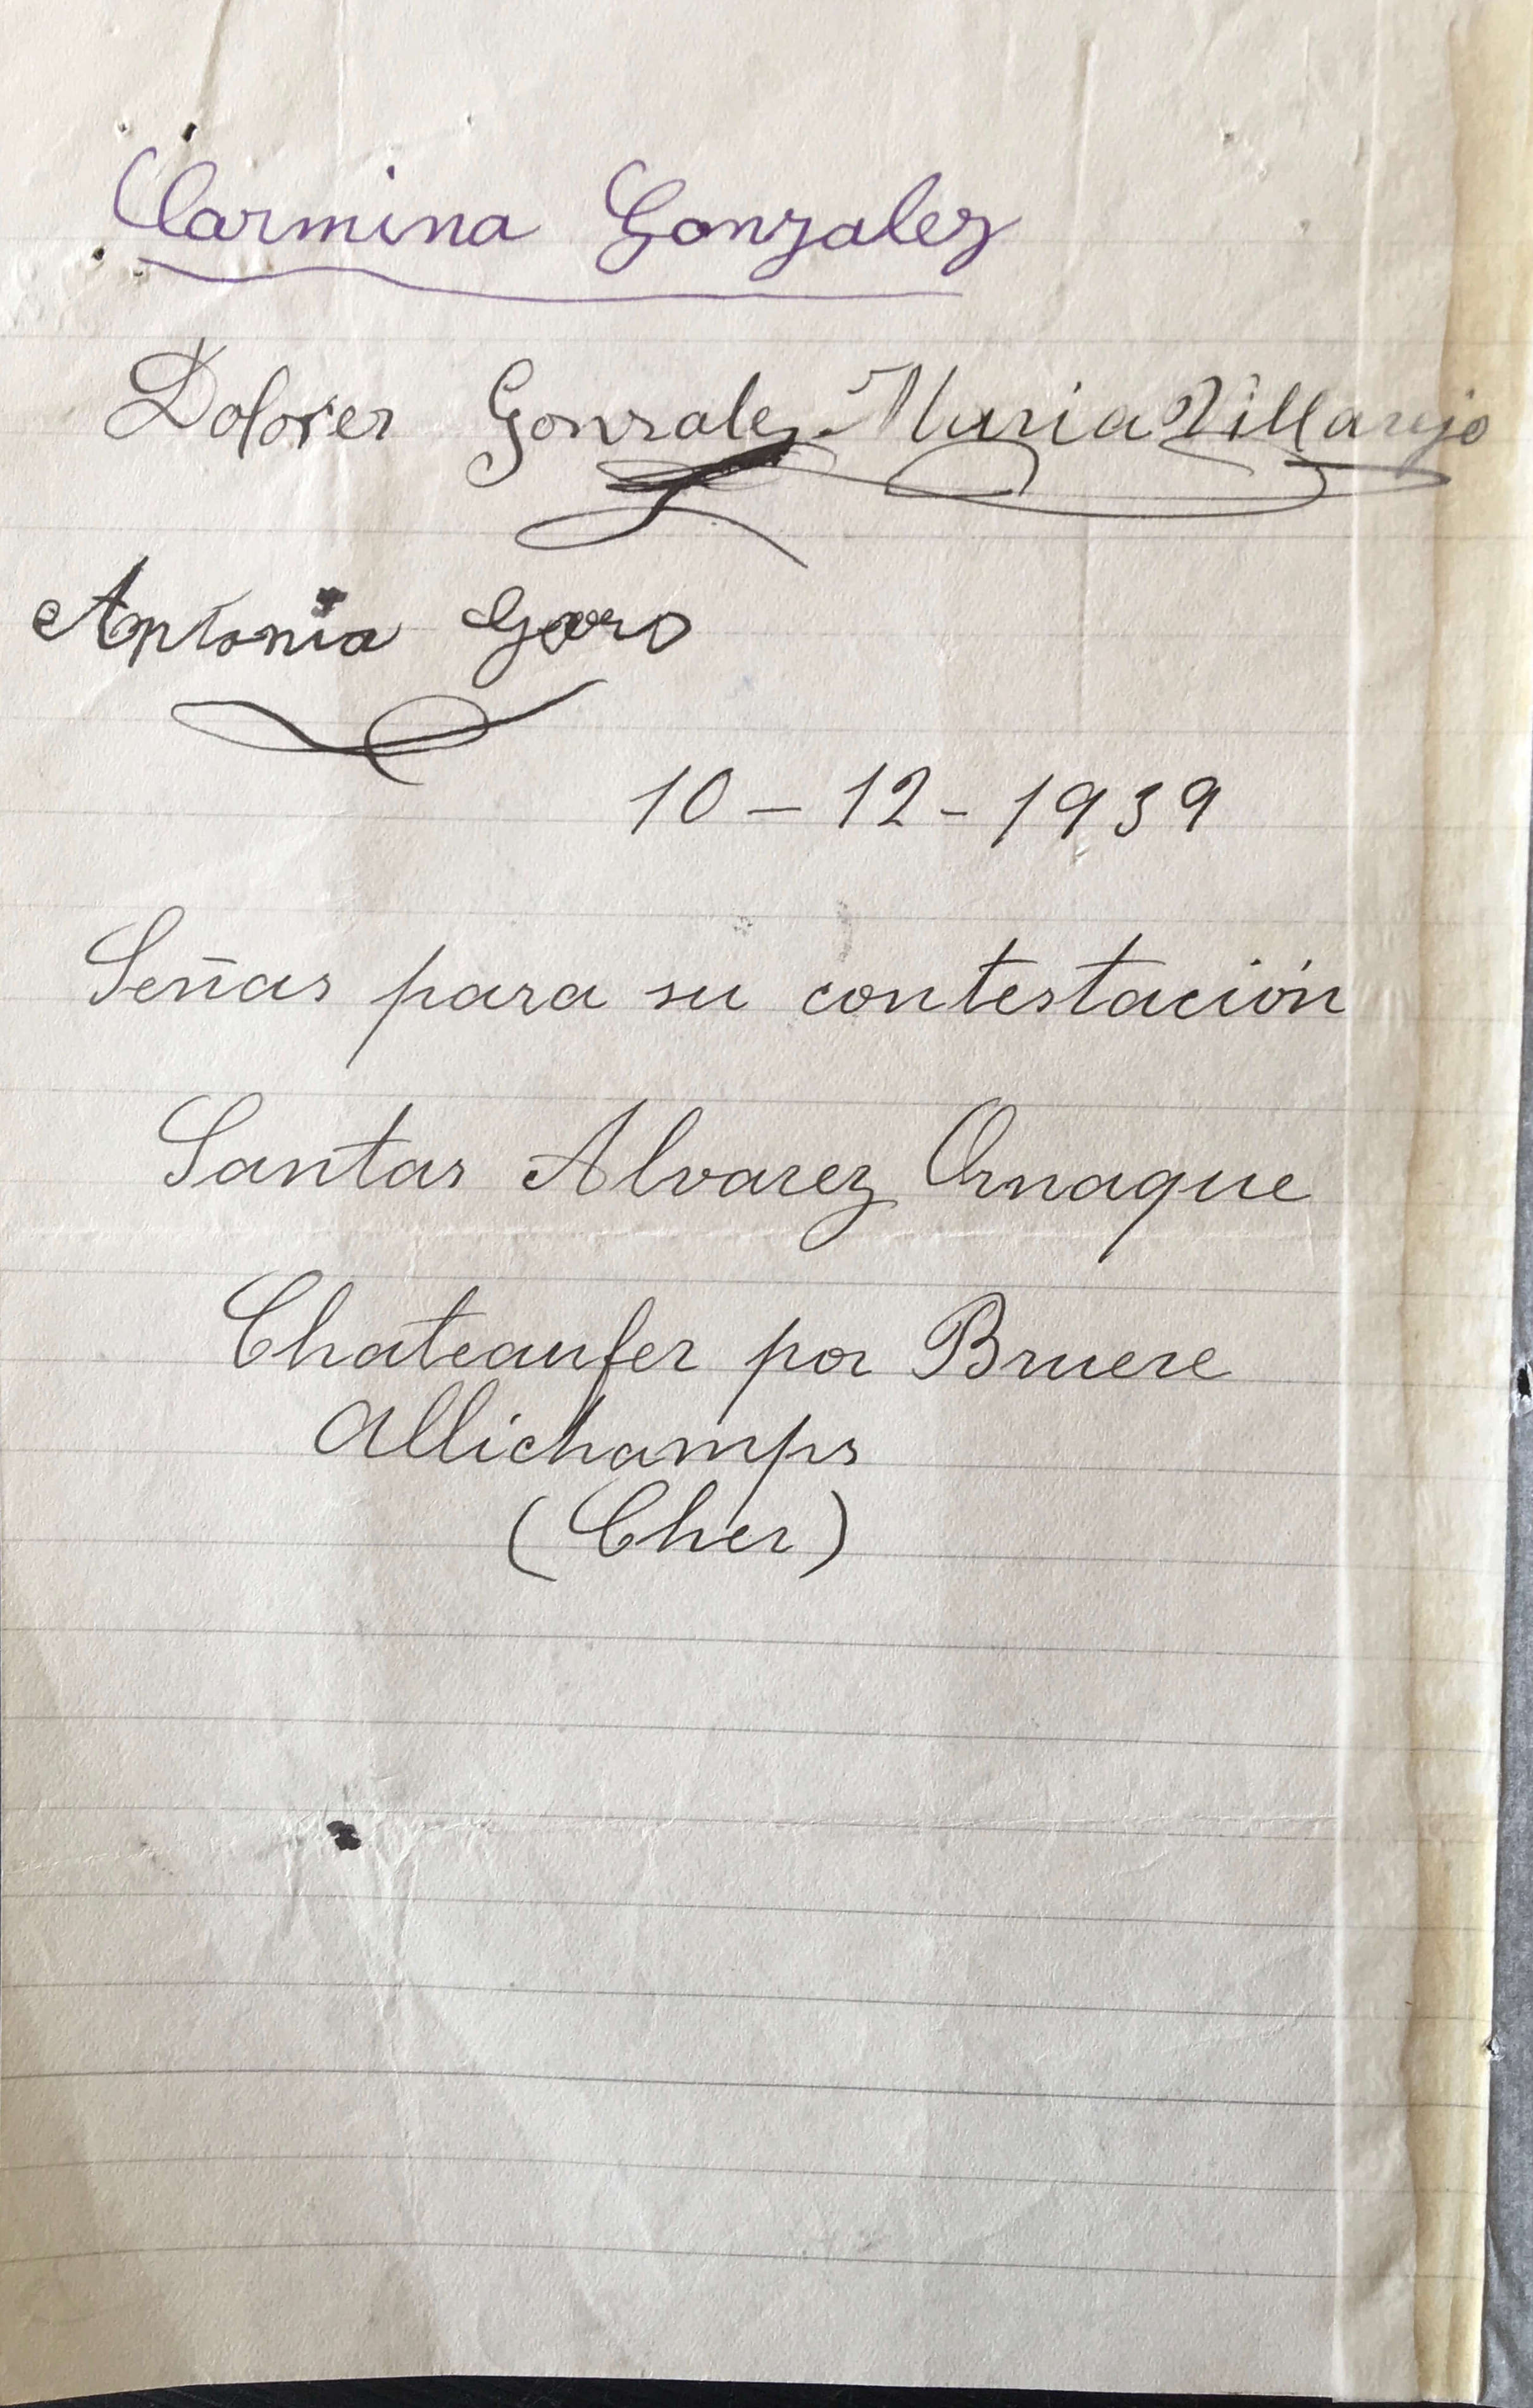 Carmina Gonzalez
Dolores Gonzalez Maria Villarejo
Antonia
10 - 12 - 1939
Señas para su contestación
Santas Alvarez Ornaque
Chateaufer por Bruere
Allichamps
(Cher)